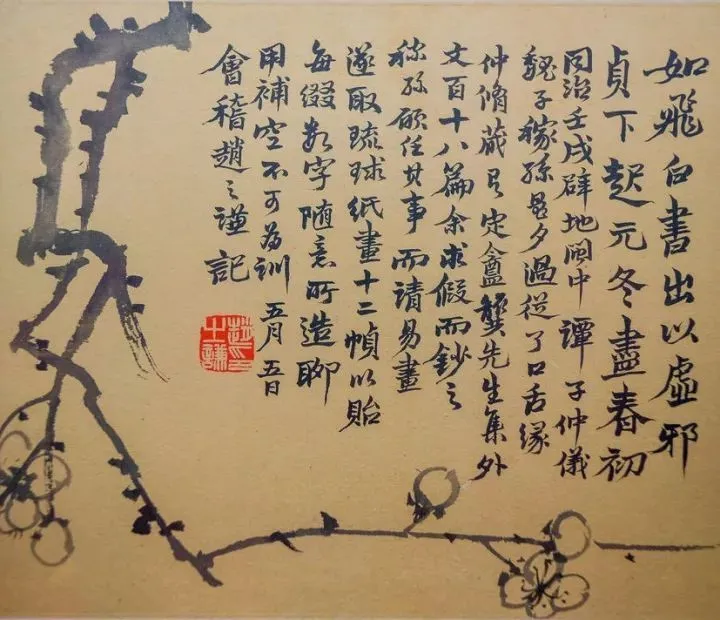 如飛白書出以虛邪
貞下起元冬盡春初
同治壬戌辟地閩中譚子仲儀
魏子稼孫夕過從了口舌緣
仲脩蔵有定盦龔先生集外
文百十八篇余求假而鈔之
稼孫願任其事而請易畫
遂取琉球紙畫十二幀以貽
每綴數字隨意所造聊
用補空不可為訓 五月五日
會稽趙之謙記
趙印之謙